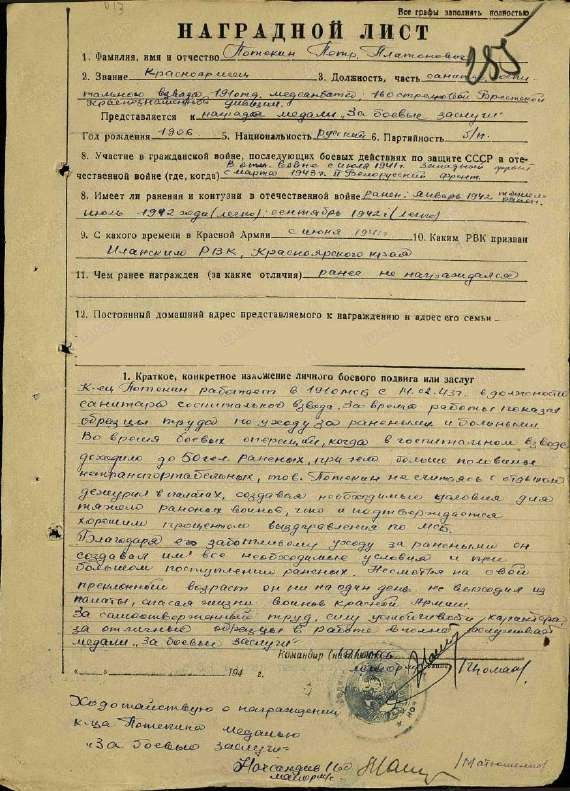 Все графы заполнять полностью
НАГРАДНОЙ ЛИСТ
285
1. Фамилия, имя и отчество Потюкин Петр Платонович
2. Звание Красноармеец 3. Должность, часть санитар госпи
тального взвода, 191 отд. медсанбата 160 стрелковой Брестской
Краснознаменной дивизии.
Представляется к награде медали „За боевые заслуги"
Год рождения 1906 5. Национальность русский 6. Партийность б/п.
8. Участие в гражданской войне, последующих боевых действиях по защите СССР в оте-
В отеч. войне с июля 1941г. Западный фронт
чественной войне (где, когда) с марта 1943г. II Белорусский фронт.
8. Имеет ли ранения и контузии в отечественной войне ранен: январь 1942
июль 1942 года (легко): сентябрь 1942г (легко)
9. С какого времени в Красной Армии с июня 1941г. 10. Каким РВК призван
Иланским РВК, Красноярского края
11. Чем ранее награжден (за какие отличия) ранее не награждался
12. Постоянный домашний адрес представляемого к награждению и адрес его семьи
1. Краткое, конкретное изложение личного боевого подвига или заслуг
К-ец Потюкин работает в 191 ОМСБ с 14.02.43г. в должности
санитара госпитального взвода. За время работы показал
образцы труда по уходу за ранеными и больными.
Во время боевых операций, когда в госпитальном взводе
доходило до 50 чел раненых, при чем больше половины
нетранспортабельных, тов. Потюкин не считаясь с отдыхом
дежурил в палатах, создавая необходимые условия для
тяжело раненых воинов, что и подтверждается
хорошим процентом выздоравление по МСБ.
Благодаря его заботливому уходу за ранеными он
создавал им все необходимые условия и при
большом поступлении раненых. Несмотря на свой
преклонный возраст он ни на один день не выходил из
палаты, спасая жизни воинов Красной Армии.
За самоотверженный труд, силу устойчивой характера,
за отличные образцы в работе вполне заслуживает
медали „За боевые заслуги"
Командир 191 ОМСБ
194 г. майор м/с
Ходотайствую о награждении
к-ца Потюкина медалью
„За боевые заслуги"
Начсандив 160
майор м/с /Матюшенко/